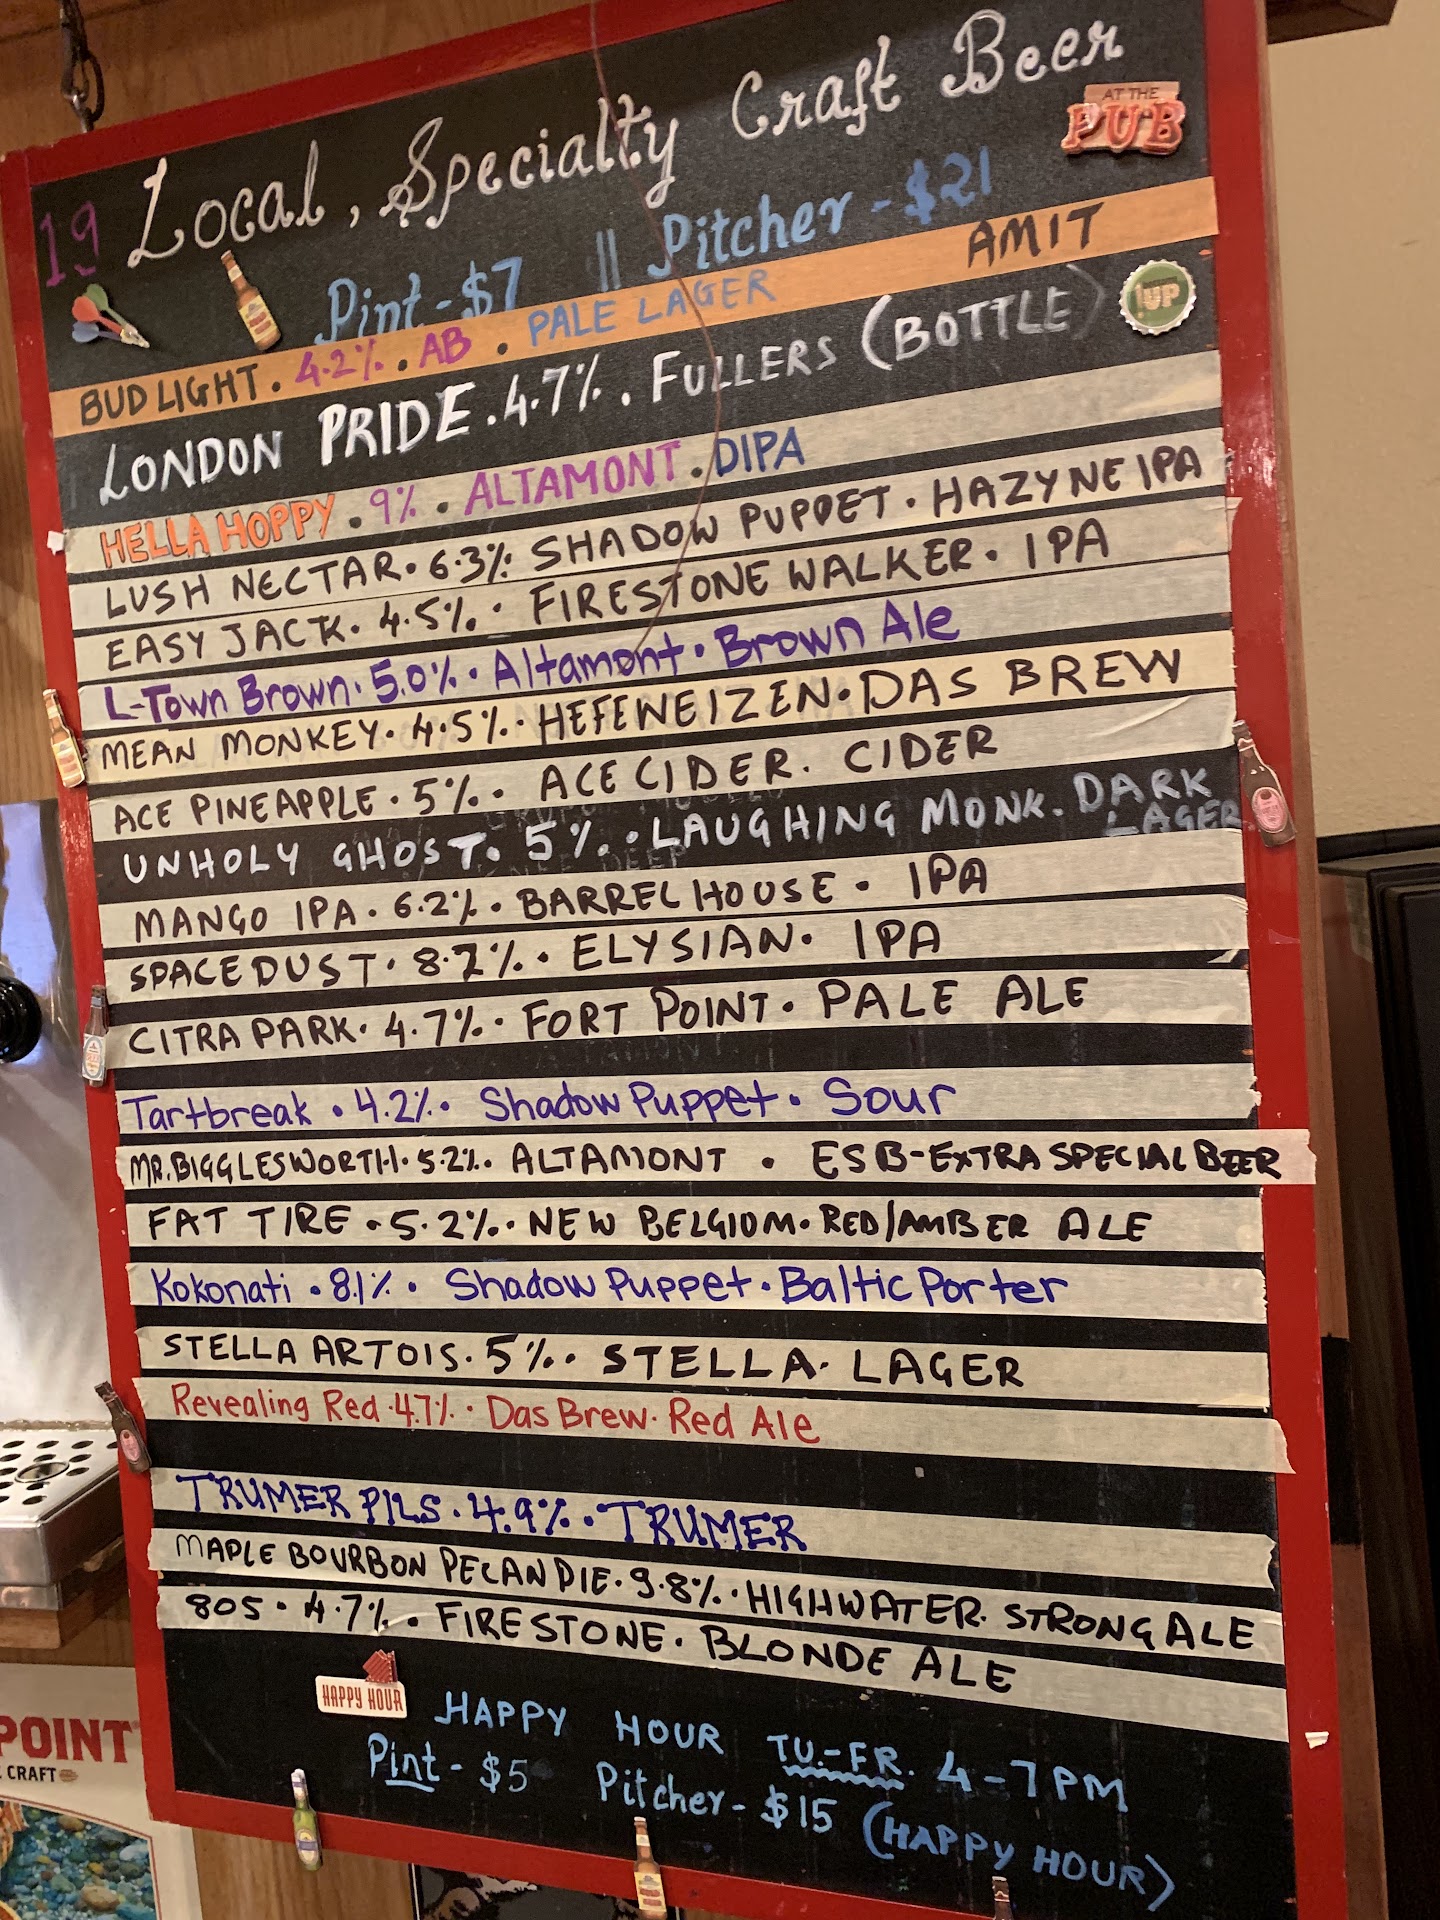 19 Local, Specialty Craft Beer
AT THE
PUB
Pint - $7 || Pitcher - $21
BUD LIGHT . 4.2% . AB . PALE LAGER AMIT
LONDON PRIDE . 4.7% . FULLERS (BOTTLE)
UP
HELLA HOPPY . 9% . ALTAMONT . DIPA
LUSH NECTAR . 6.3% . SHADOW PUPPET . HAZY NE IPA
EASY JACK . 4.5% . FIRESTONE WALKER . IPA
L-Town Brown . 5.0% . Altamont . Brown Ale
MEAN MONKEY . 4.5% . HEFEWEIZEN . DAS BREW
ACE PINEAPPLE . 5% . ACE CIDER . CIDER
UNHOLY GHOST . 5% . LAUGHING MONK . DARK
LAGER
MANGO IPA . 6.2% . BARREL HOUSE . IPA
SPACE DUST . 8.2% . ELYSIAN . IPA
CITRA PARK . 4.7% . FORT POINT . PALE ALE
Tartbreak . 4.2% . Shadow Puppet . Sour
MR. BIGGLESWORTH . 5.2% . ALTAMONT . ESB-EXTRA SPECIAL BEER
FAT TIRE . 5.2% . NEW BELGIUM . RED/AMBER ALE
Kokonati . 8.1% . Shadow Puppet . Baltic Porter
STELLA ARTOIS . 5% . STELLA . LAGER
Revealing Red . 4.7% . Das Brew . Red Ale
TRUMER PILS . 4.9% . TRUMER
MAPLE BOURBON PECAN PIE . 9.8% . HIGHWATER . STRONG ALE
805 . 4.7% . FIRESTONE . BLONDE ALE
HAPPY HOUR
HAPPY HOUR TU.-FR. 4-7PM
Pint - $5 Pitcher - $15 (HAPPY HOUR)
POINT
CRAFT